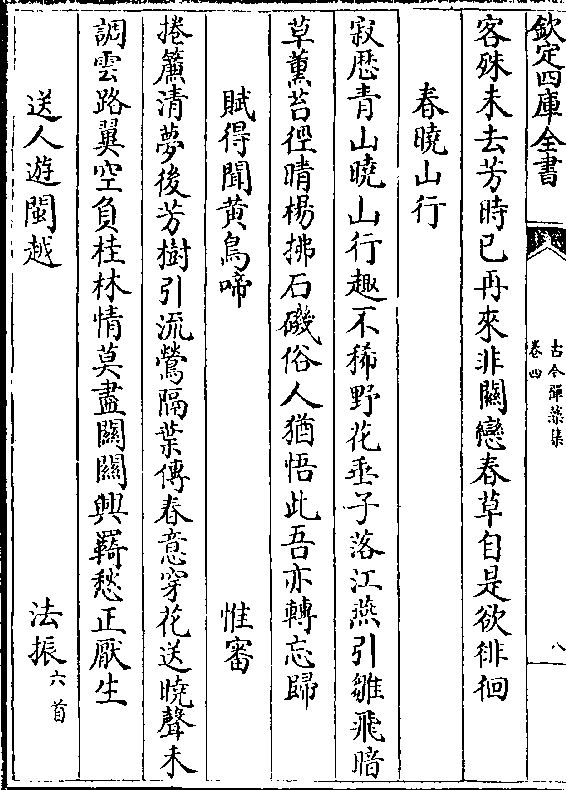 欽定四庫全書
古今禪藻集
卷四
八
客殊未去芳時已再來非關戀春草自是欲徘徊
春曉山行
寂歴青山曉山行趣不稀野花垂子落江燕引雛飛暗
草薫苔徑晴楊拂石磯俗人猶悟此吾亦轉忘歸
賦得聞黄鳥啼 惟審
捲簾清夢後芳樹引流鶯隔葉傳春意穿花送曉聲未
調雲路翼空負桂林情莫盡關關興羇愁正厭生
送人遊閩越 法振六首